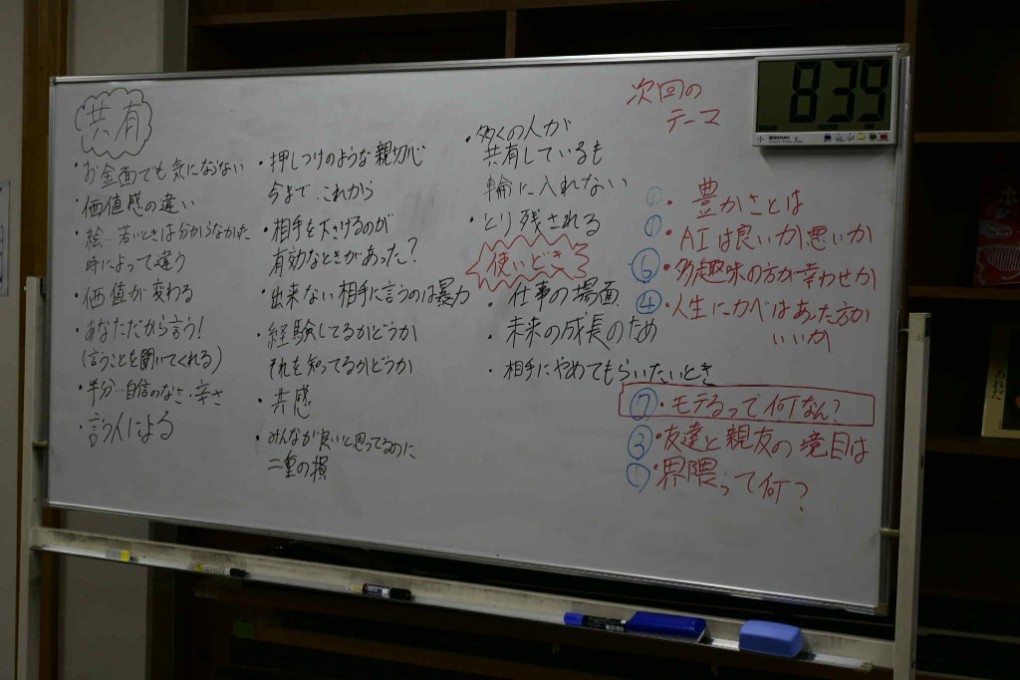 共有
・お金面でも気にならない
・価値感の違い
・絵…若いときは分からなかった
時によって違う
・価値が変わる
・あなただから言う!
(言うことを聞いてくれる)
・半分…自信のなさ・辛さ
・言う人による
・押しつけのような親切心
今まで、これから
・相手を下さけるのが
有効なときがあった?
・出来ない相手に言うのは暴力
・経験してるかどうか
それを知ってるかどうか
・共感
・みんなが良いと思ってるのに
二重の損
・多くの人が
共有しているも
輪に入れない
・とり残される
使いどき
・仕事の場面
・未来の成長のため
・相手にやめてもらいたいとき
次回の
テーマ
① ・豊かさとは
① ・AIは良いか悪いか
⑥ ・多趣味の方が幸わせか
④ ・人生にカベはあった方が
いいか
⑦ ・モテるって何なん?
③ ・友達と親友の境目は
① ・界隈って何?
8:39